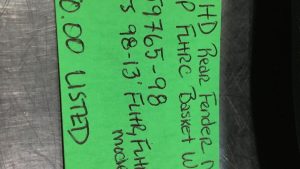 HD Rear Fender
P FLHRC Basket W
59765-98
S 98-13' FLHR, FLH
mode
0.00 LISTED